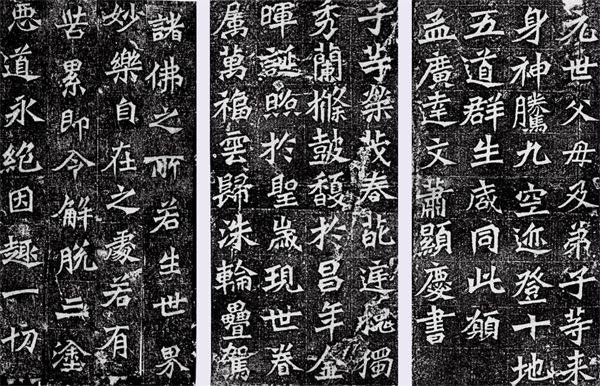 元世父母及弟子等来
身神騰九空迹登十地
五道群生咸同此願
孟廣達文 蕭顯慶書
子等榮茂春葩庭槐獨
秀蘭條鼓馥於昌年金
暉誕照於聖歲現世眷
属萬福雲歸洙輪疊駕
諸佛之所若生世界
妙樂自在之處若有
苦累即令解脫三塗
惡道永絕因趣一切